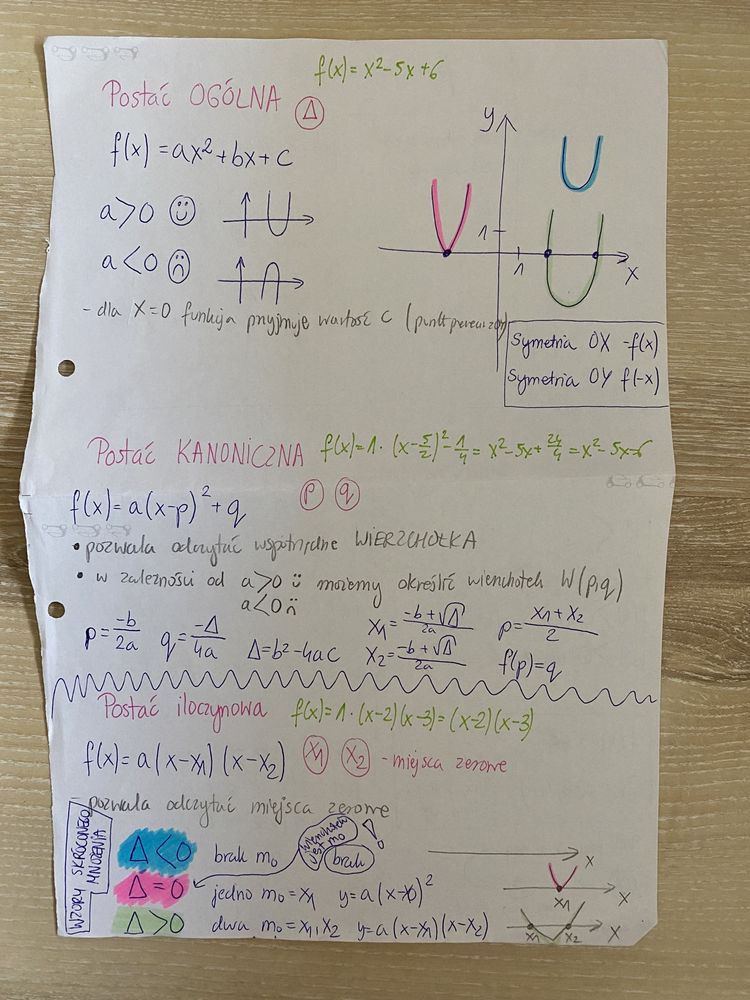 f(x) = x² - 5x + 6
Postać OGÓLNA Δ
f(x) = ax² + bx + c
a>0
a<0
- dla x=0 funkcja przyjmuje wartość c (punkt
y
1
1
x
Symetria OX -f(x)
Symetria OY f(-x)
Postać KANONICZNA f(x) = 1 · (x - 5/2)² - 1/4 = x² - 5x + 24/4 = x² - 5x 6
f(x) = a(x-p)² + q p q
• pozwala odczytać współrzędne WIERZCHOŁKA
• w zależności od a>0 możemy określić wierzchołek W(p,q)
a<0
p = -b/2a q = -Δ/4a Δ = b² - 4ac x1 = -b+√Δ/2a p = x1+x2/2
x2 = -b+√Δ/2a f(p) = q
Postać iloczynowa f(x) = 1 · (x-2)(x-3) = (x-2)(x-3)
f(x) = a(x-x1)(x-x2) x1 x2 - miejsca zerowe
pozwala odczytać miejsca zerowe
WZORY SKRÓCONEGO MNOŻENIA
Δ<0 brak m0
wierzchołek jest m0 !
brak
x
Δ=0 jedno m0 = x1 y = a(x-x0)²
x1 x
Δ>0 dwa m0 = x1, x2 y = a(x-x1)(x-x2)
x1 x2 x